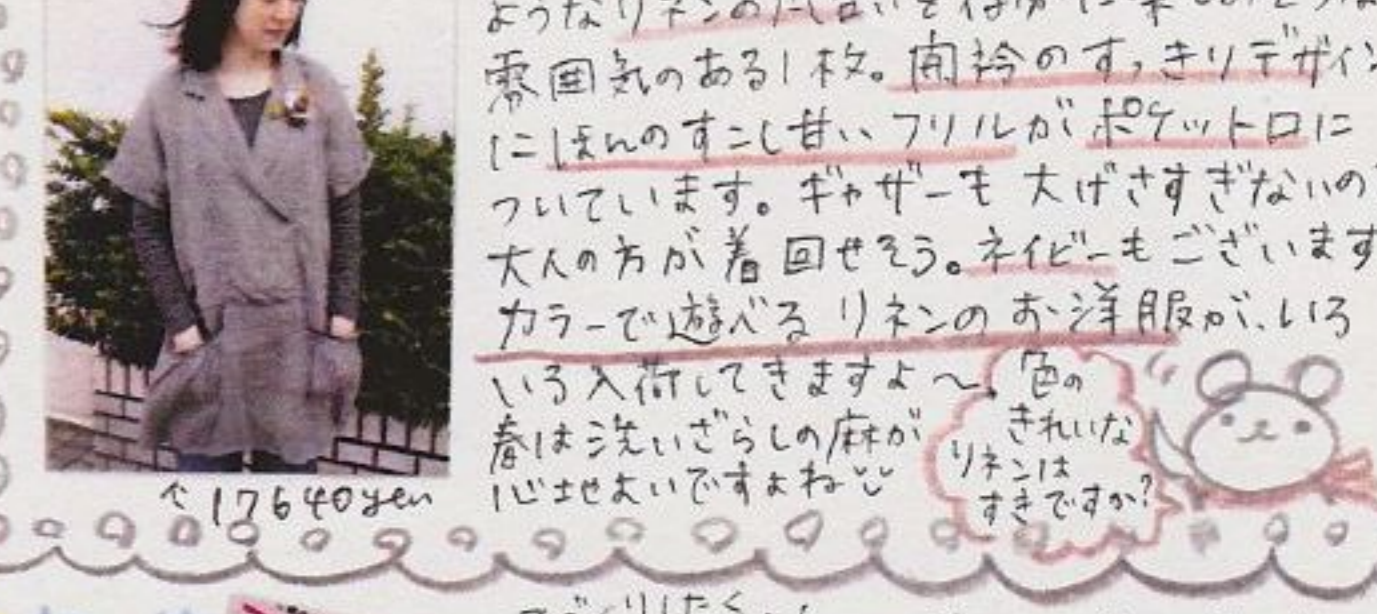 ようなリネンの風合いを
雰囲気のある1枚。開衿のすっきりデザイン
にほんのすこし甘いフリルがポケット口に
ついています。ギャザーも大げさすぎないの
大人の方が着回せそう。ネイビーもございます
カラーで遊べるリネンのお洋服が、いろ
いろ入荷してきますよ〜。
春は洗いざらしの麻が
心地よいですよね
色の
きれいな
リネンは
すきですか?
↑17640yen